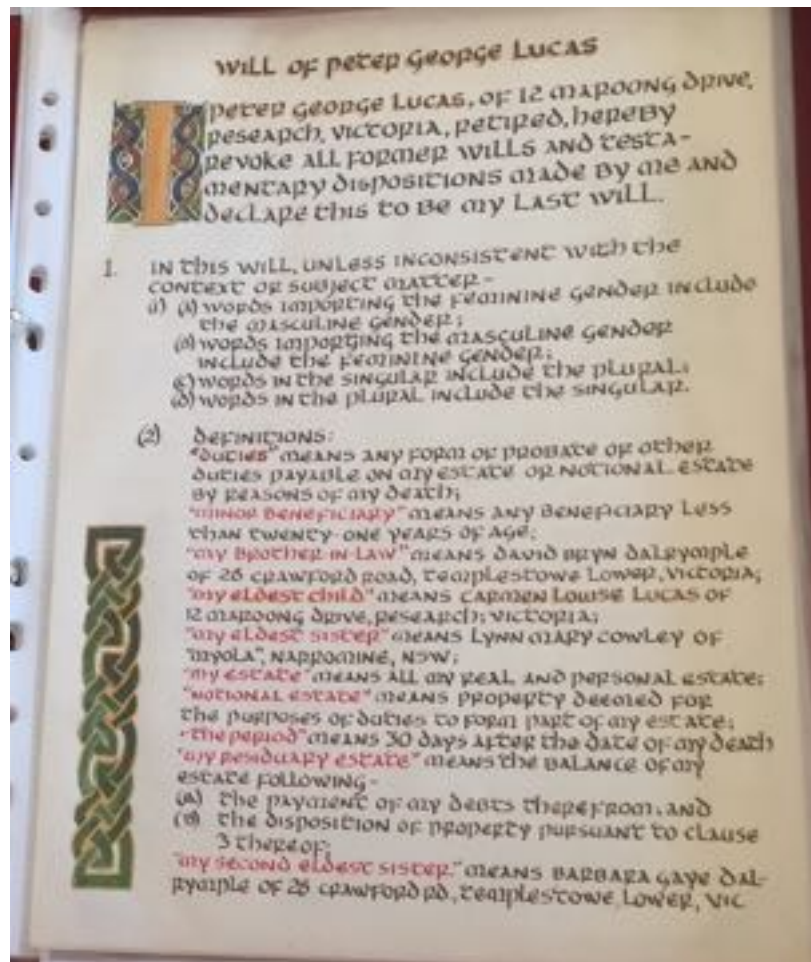 WILL OF PETER GEORGE LUCAS
I PETER GEORGE LUCAS, OF 12 MAROONG DRIVE,
RESEARCH, VICTORIA, RETIRED, HEREBY
REVOKE ALL FORMER WILLS AND TESTA-
MENTARY DISPOSITIONS MADE BY ME AND
DECLARE THIS TO BE MY LAST WILL.
1. IN THIS WILL, UNLESS INCONSISTENT WITH THE
CONTEXT OR SUBJECT MATTER -
(1) (A) WORDS IMPORTING THE FEMININE GENDER INCLUDE
THE MASCULINE GENDER;
(B) WORDS IMPORTING THE MASCULINE GENDER
INCLUDE THE FEMININE GENDER;
(C) WORDS IN THE SINGULAR INCLUDE THE PLURAL;
(D) WORDS IN THE PLURAL INCLUDE THE SINGULAR.
(2) DEFINITIONS:
"DUTIES" MEANS ANY FORM OF PROBATE OR OTHER
DUTIES PAYABLE ON MY ESTATE OR NOTIONAL ESTATE
BY REASONS OF MY DEATH;
"MINOR BENEFICIARY" MEANS ANY BENEFICIARY LESS
THAN TWENTY-ONE YEARS OF AGE;
"MY BROTHER-IN-LAW" MEANS DAVID BRYN DALRYMPLE
OF 28 CRAWFORD ROAD, TEMPLESTOWE LOWER, VICTORIA;
"MY ELDEST CHILD" MEANS CARMEN LOUISE LUCAS OF
12 MAROONG DRIVE, RESEARCH, VICTORIA;
"MY ELDEST SISTER" MEANS LYNN MARY COWLEY OF
"MYOLA", NARROMINE, NSW;
"MY ESTATE" MEANS ALL MY REAL AND PERSONAL ESTATE;
"NOTIONAL ESTATE" MEANS PROPERTY DEEMED FOR
THE PURPOSES OF DUTIES TO FORM PART OF MY ESTATE;
"THE PERIOD" MEANS 30 DAYS AFTER THE DATE OF MY DEATH
"MY RESIDUARY ESTATE" MEANS THE BALANCE OF MY
ESTATE FOLLOWING -
(A) THE PAYMENT OF MY DEBTS THEREFROM; AND
(B) THE DISPOSITION OF PROPERTY PURSUANT TO CLAUSE
3 THEREOF;
"MY SECOND ELDEST SISTER" MEANS BARBARA GAYE DAL-
RYMPLE OF 28 CRAWFORD RD, TEMPLESTOWE LOWER, VIC